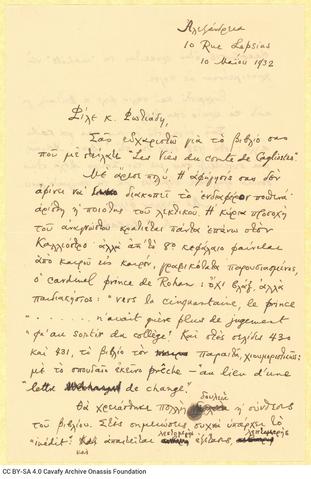 Αλεξάνδρεια
10 Rue Lepsius
10 Μαΐου 1932
Φίλε κ. Φωτιάδη,
Σας ευχαριστώ για το βιβλίο σας
που με στείλατε "Les Vies du comte de Cagliostro"
Με άρεσε πολύ. Η αφήγησις σας δεν
αφίνει να διακοπεί το ενδιαφέρον πουθενά·
αρίστη η ποιότης του λεκτικού. Η κύρια προσοχή
του αναγνώστου κρατιέται πάντα επάνω στον
Καλλιόστρο· αλλά απ' το 8º κεφάλαιο φαίνεται
από καιρό εις καιρόν, γραφικότατα παρουσιασμένος,
ο cardinal prince de Rohan: όχι βλαξ, αλλά
"vers la cinquantaine, le prince
"....... n'avait guère plus de jugement
"qu'au sortir du collège! Και στες σελίδες 430
και 431, το βιβλίο τον παρατά, χιουμοριστικώς:
με το σπουδαίο εκείνο prêche — "au lieu d'une
"lettre de change".
Θα χρειάσθηκε πολλή δουλειά η σύνθεσις
του βιβλίου. Στες σημειώσεις, συχνά υπάρχει το
"inédit". Και απαιτείται λεπτομερής εξέτασις,
και